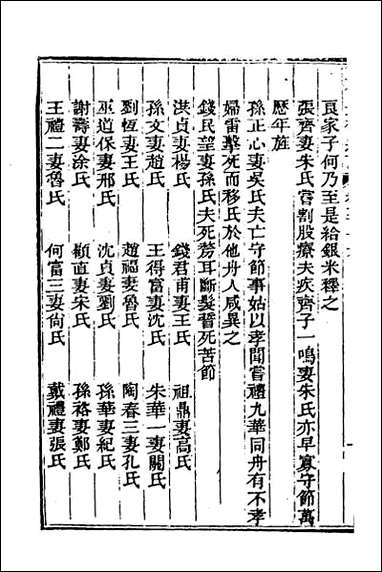 良家子何乃至是給銀米釋之
張齊妻朱氏嘗割股療夫疾齊子一鳴妻朱氏亦早寡守節萬
歷年旌
孫正心妻吳氏夫亡守節事姑以孝聞嘗禮九華同舟有不孝
婦雷擊死而移氏於他舟人咸異之
錢民望妻孫氏夫死剺耳斷髮誓死苦節
洪貞妻楊氏　錢君甫妻王氏　祖鼎妻高氏
孫文妻趙氏　王得富妻沈氏　朱華一妻關氏
劉恆妻王氏　趙福妻魯氏　陶春三妻孔氏
巫道保妻邢氏　沈貞妻劉氏　孫華妻紀氏
謝壽妻涂氏　顓直妻宋氏　孫簵妻鄭氏
王禮二妻魯氏　何富三妻尙氏　戴禮妻張氏